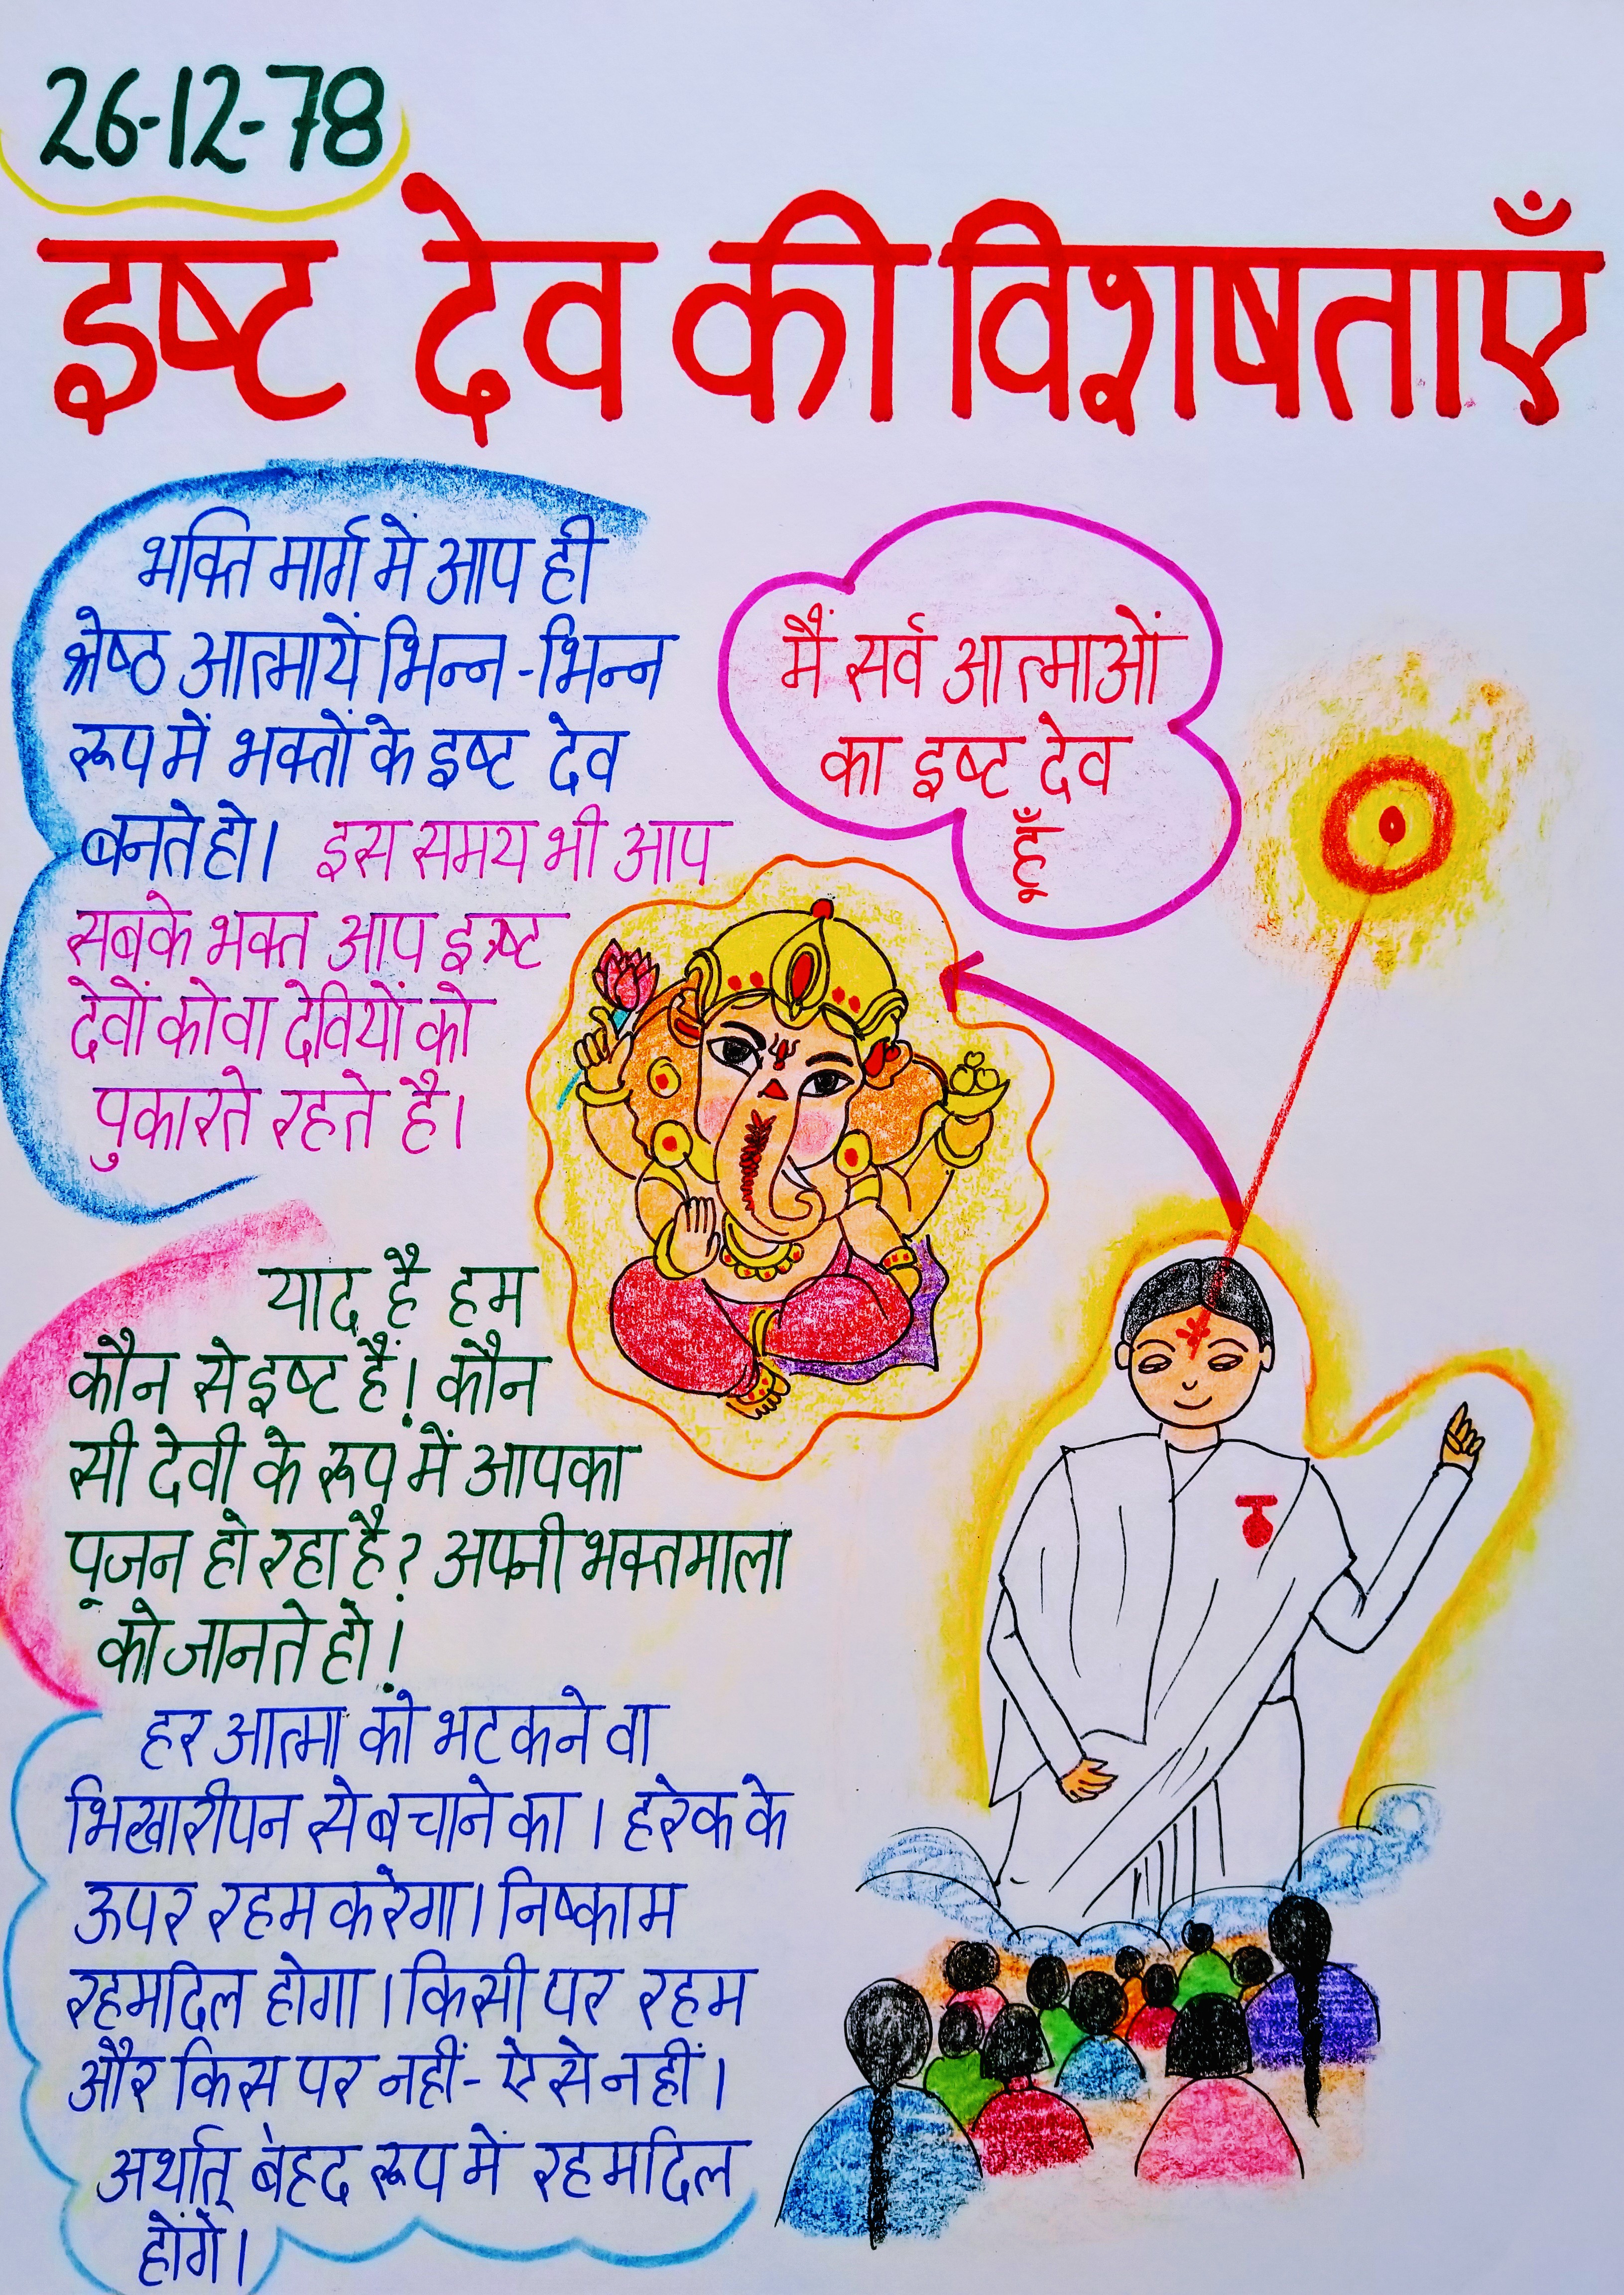 26-12-78
इष्ट देव की विशषताएँ
भक्ति मार्ग में आप ही
श्रेष्ठ आत्मायें भिन्न-भिन्न
रूप में भक्तों के इष्ट देव
बनते हो। इस समय भी आप
सबके भक्त आप इष्ट
देवों को वा देवियों को
पुकारते रहते है।
मैं सर्व आत्माओं
का इष्ट देव
हूँ
याद है हम
कौन से इष्ट हैं! कौन
सी देवी के रूप में आपका
पूजन हो रहा है? अपनी भक्तमाला
को जानते हो!
हर आत्मा को भटकने वा
भिखारीपन से बचाने का। हरेक के
ऊपर रहम करेगा। निष्काम
रहमदिल होगा। किसी पर रहम
और किस पर नहीं- ऐसे नहीं।
अर्थात् बेहद रूप में रहमदिल
होंगे।